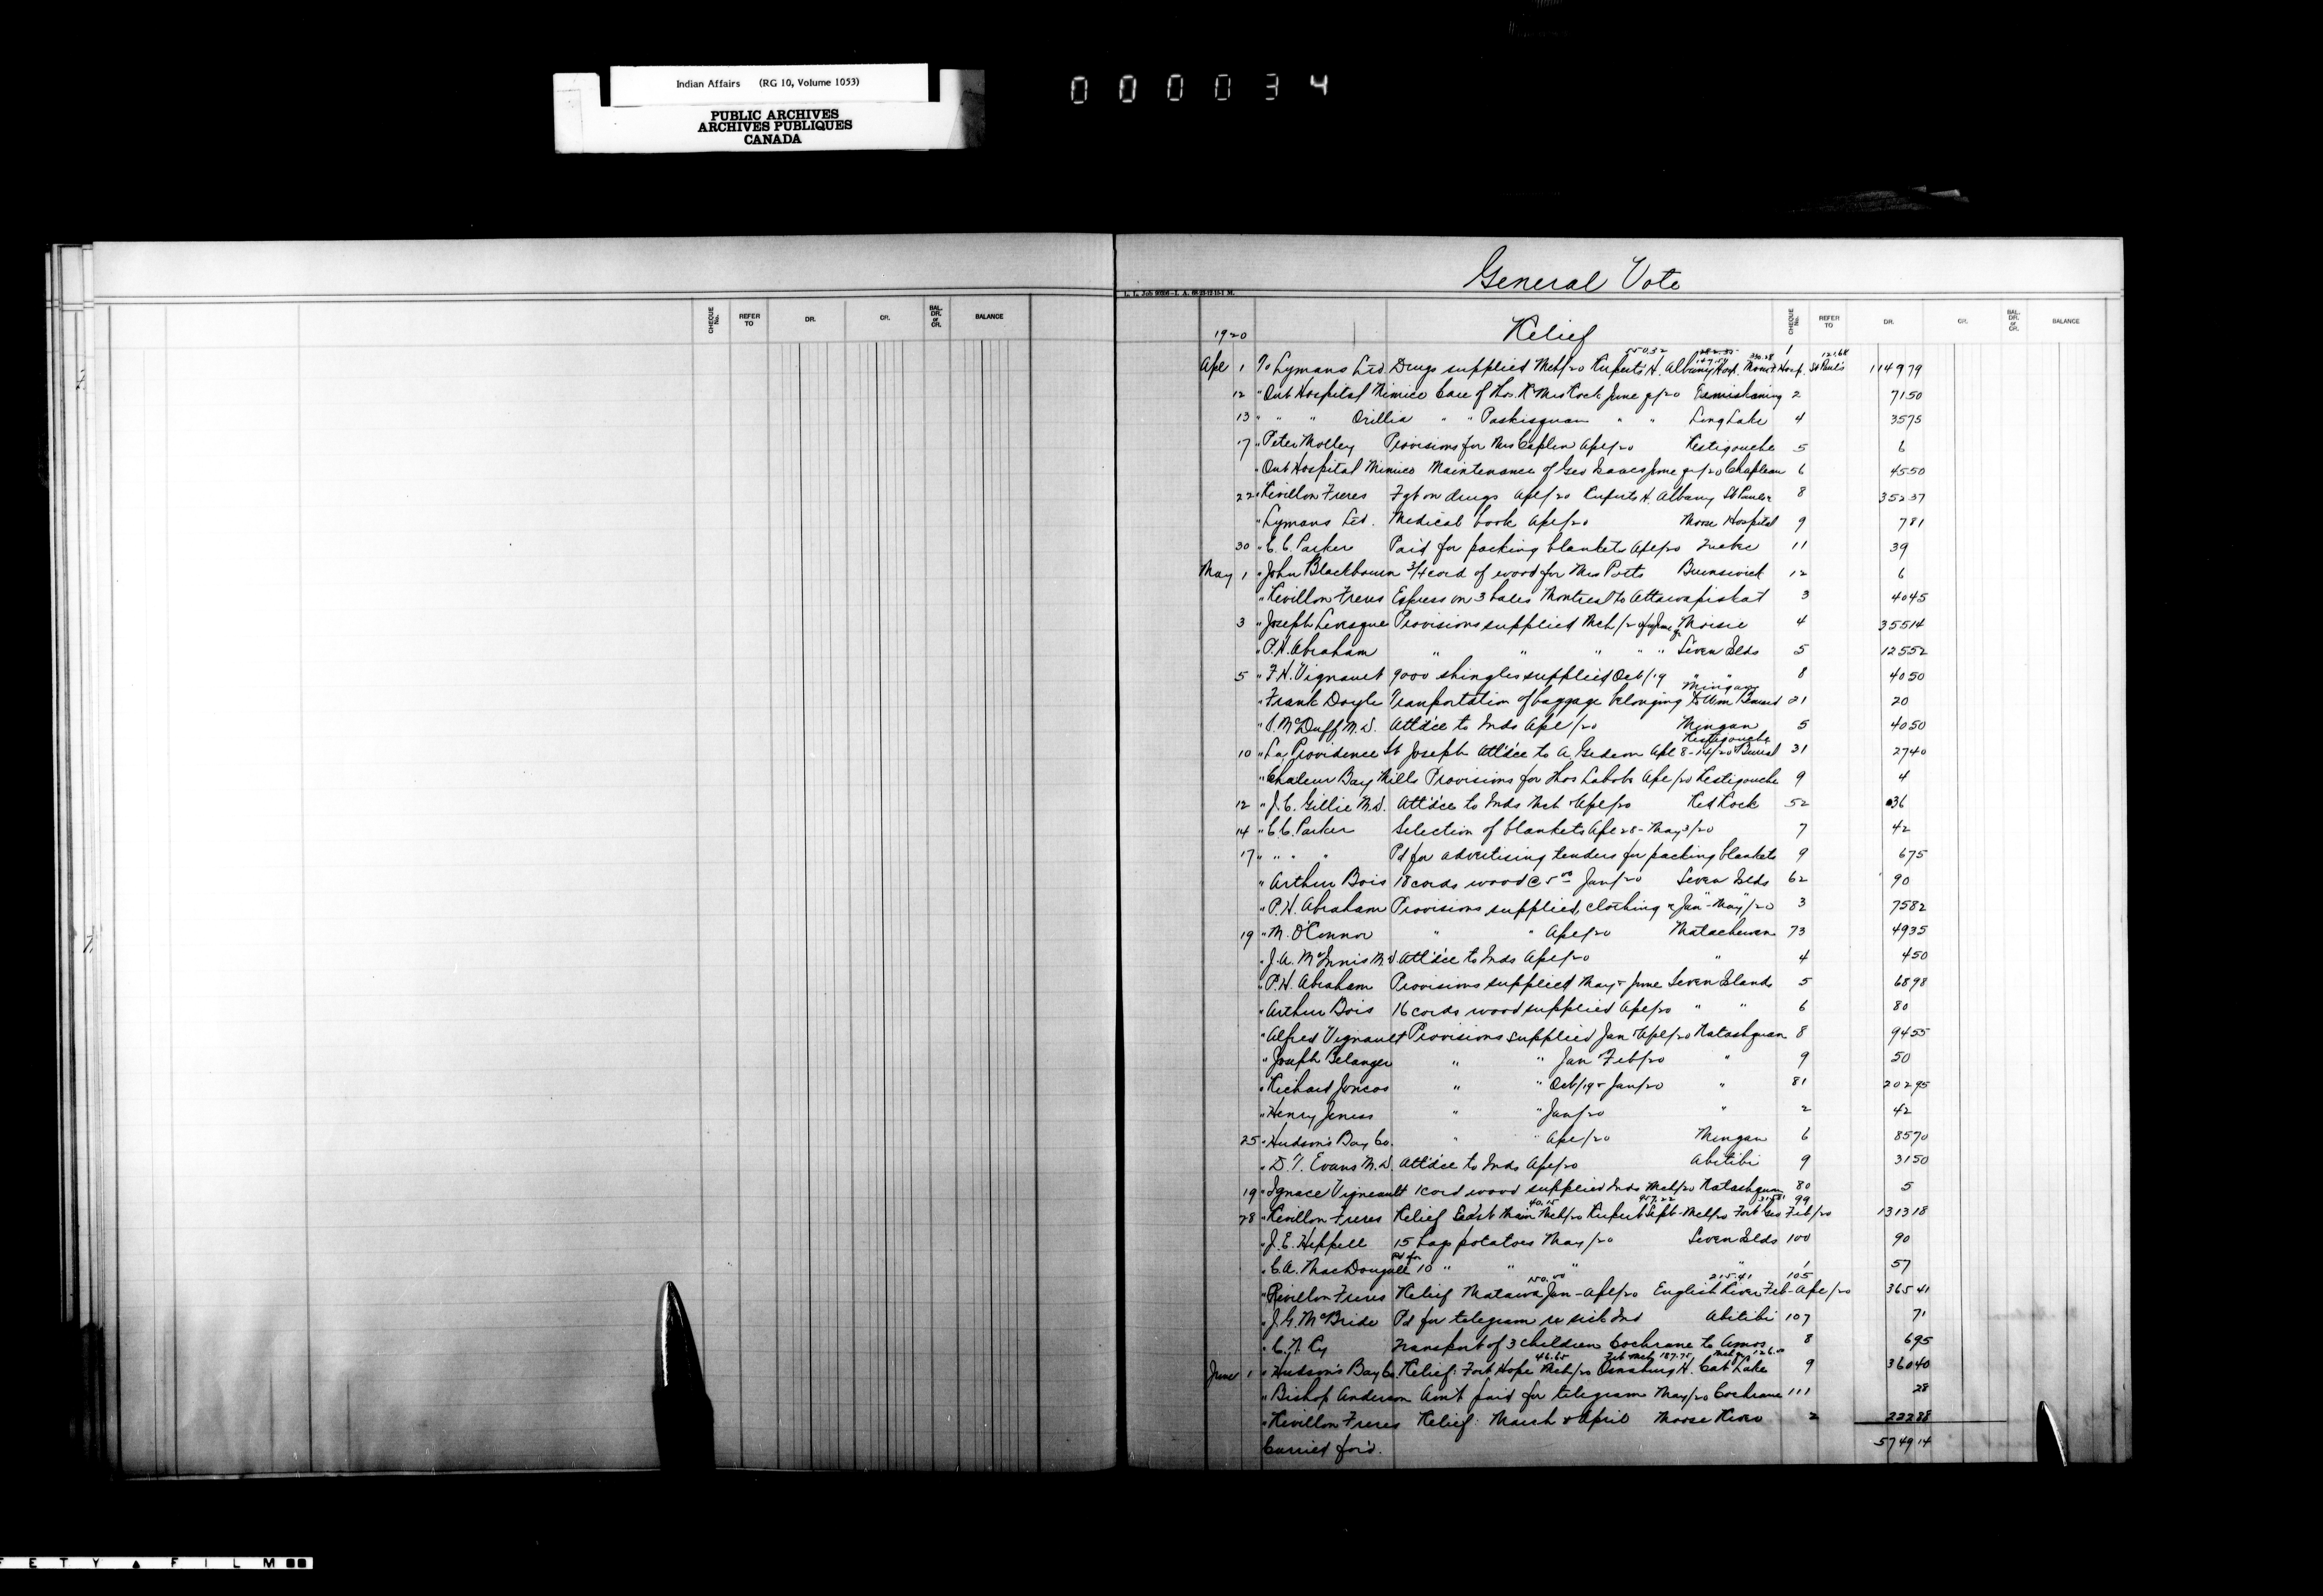 Indian Affairs (RG 10, Volume 1053)
PUBLIC ARCHIVES
ARCHIVES PUBLIQUES
CANADA
000034
General Vote
CHEQUE No. REFER TO DR. CR. BAL. DR. or CR. BALANCE
CHEQUE No. REFER TO DR. CR. BAL. DR. or CR. BALANCE
1920 Relief
550.32 282.35 330.28 121.64
Apl 1 To Lymans Ltd. Drugs supplied Mch/20 Ruperts H. Albany Hosp. Moose Hosp. St Paul's 1 1149 79
12 " Ont Hospital Mimico Care of Thos. R Mrs Rock June qr/20 Temiskaming 2 71 50
13 " " " Orillia " " Paskisquan " " Long Lake 4 35 75
17 " Peter Molley Provisions for Mrs Caplin Apl/20 Restigouche 5 6
" Ont Hospital Mimico Maintenance of Geo Isaac June qr/20 Chapleau 6 45 50
22 " Revillon Freres Fgt on drugs Apl/20 Ruperts H. Albany St Pauls 8 352 37
" Lymans Ltd. Medical book Apl/20 Moose Hospital 9 7 81
30 " C. C. Parker Paid for packing blankets Apl/20 11 39
May 1 " John Blackbourn 3/4 cord of wood for Mrs Potts Brunswick 12 6
" Revillon Freres Express on 3 bales Montreal to Attawapiskat 3 40 45
3 " Joseph Levesque Provisions supplied Mch/20 for June qr Moisie 4 355 14
" P. H. Abraham " " " " " Seven Islds 5 125 52
5 " F. H. Vignault 9000 shingles supplied Oct/19 " " 8 40 50
Mingan
" Frank Doyle Transportation of baggage belonging to Wm 21 20
" J. McDuff M.D. Attd'ce to Inds Apl/20 Mingan 5 40 50
Restigouche
10 " La Providence St Joseph Attd'ce to A. Gedeon Apl 8-14/20 Burial 31 27 40
" Chaleur Bay Mills Provisions for Thos Labobe Apl/20 Restigouche 9 4
12 " J. C. Gillie M.D. Attd'ce to Inds Mch & Apl/20 Red Rock 52 36
14 " C. C. Parker Selection of blankets Apl 28 - May 3/20 7 42
17 " " " " Pd for advertising tenders for packing blankets 9 6 75
" Arthur Bois 18 cords wood @ 5 00 Jan/20 Seven Islds 62 90
" P. H. Abraham Provisions supplied, clothing " Jan - May/20 3 75 82
19 " M. O'Connor " " Apl/20 Matachewan 73 49 35
" J. A. McInnis M.D Attd'ce to Inds Apl/20 " 4 4 50
" P. H. Abraham Provisions supplied May & June Seven Islands 5 68 98
" Arthur Bois 16 cords wood supplied Apl/20 " " 6 80
" Alfred Vignault Provisions supplied Jan & Apl/20 Natashquan 8 94 55
" Joseph Belanger " " Jan Feb/20 " 9 50
" Richard Joncas " " Oct/19 & Jan/20 " 81 202 95
" Henry Jeness " " Jan/20 " 2 42
25 " Hudson's Bay Co. " " Apl/20 Mingan 6 85 70
" D. T. Evans M.D. Attd'ce to Inds Apl/20 Abitibi 9 31 50
19 " Ignace Vigneault 1 cord wood supplied Inds Mch/20 Natashquan 80 5
40.15 957.22 315.81 99
28 " Revillon Freres Relief East Main Mch/20 Rupert Sept - Mch/20 Fort Geo Feb/20 1313 18
" J. E. Heppell 15 bags potatoes May/20 Seven Islds 100 90
Pd for
" C. A. MacDougall 10 " " " " 1 57
150.00 215.41 105
" Revillon Freres Relief Matawa Jan - Apl/20 English River Feb - Apl/20 365 41
" J. G. McBride Pd for telegram re sick Ind Abitibi 107 71
" C. N. Ry Transport of 3 children Cochrane to Amos 8 6 95
46.65 Feb Mch 187.75 126.00
June 1 " Hudson's Bay Co. Relief: Fort Hope Mch/20 Osnaburg H. Cat Lake 9 360 40
" Bishop Anderson Am't paid for telegram May/20 Cochrane 111 28
" Revillon Freres Relief: March & April Moose River 2 222 88
Carried for'd. 5749 14
FETY FILM